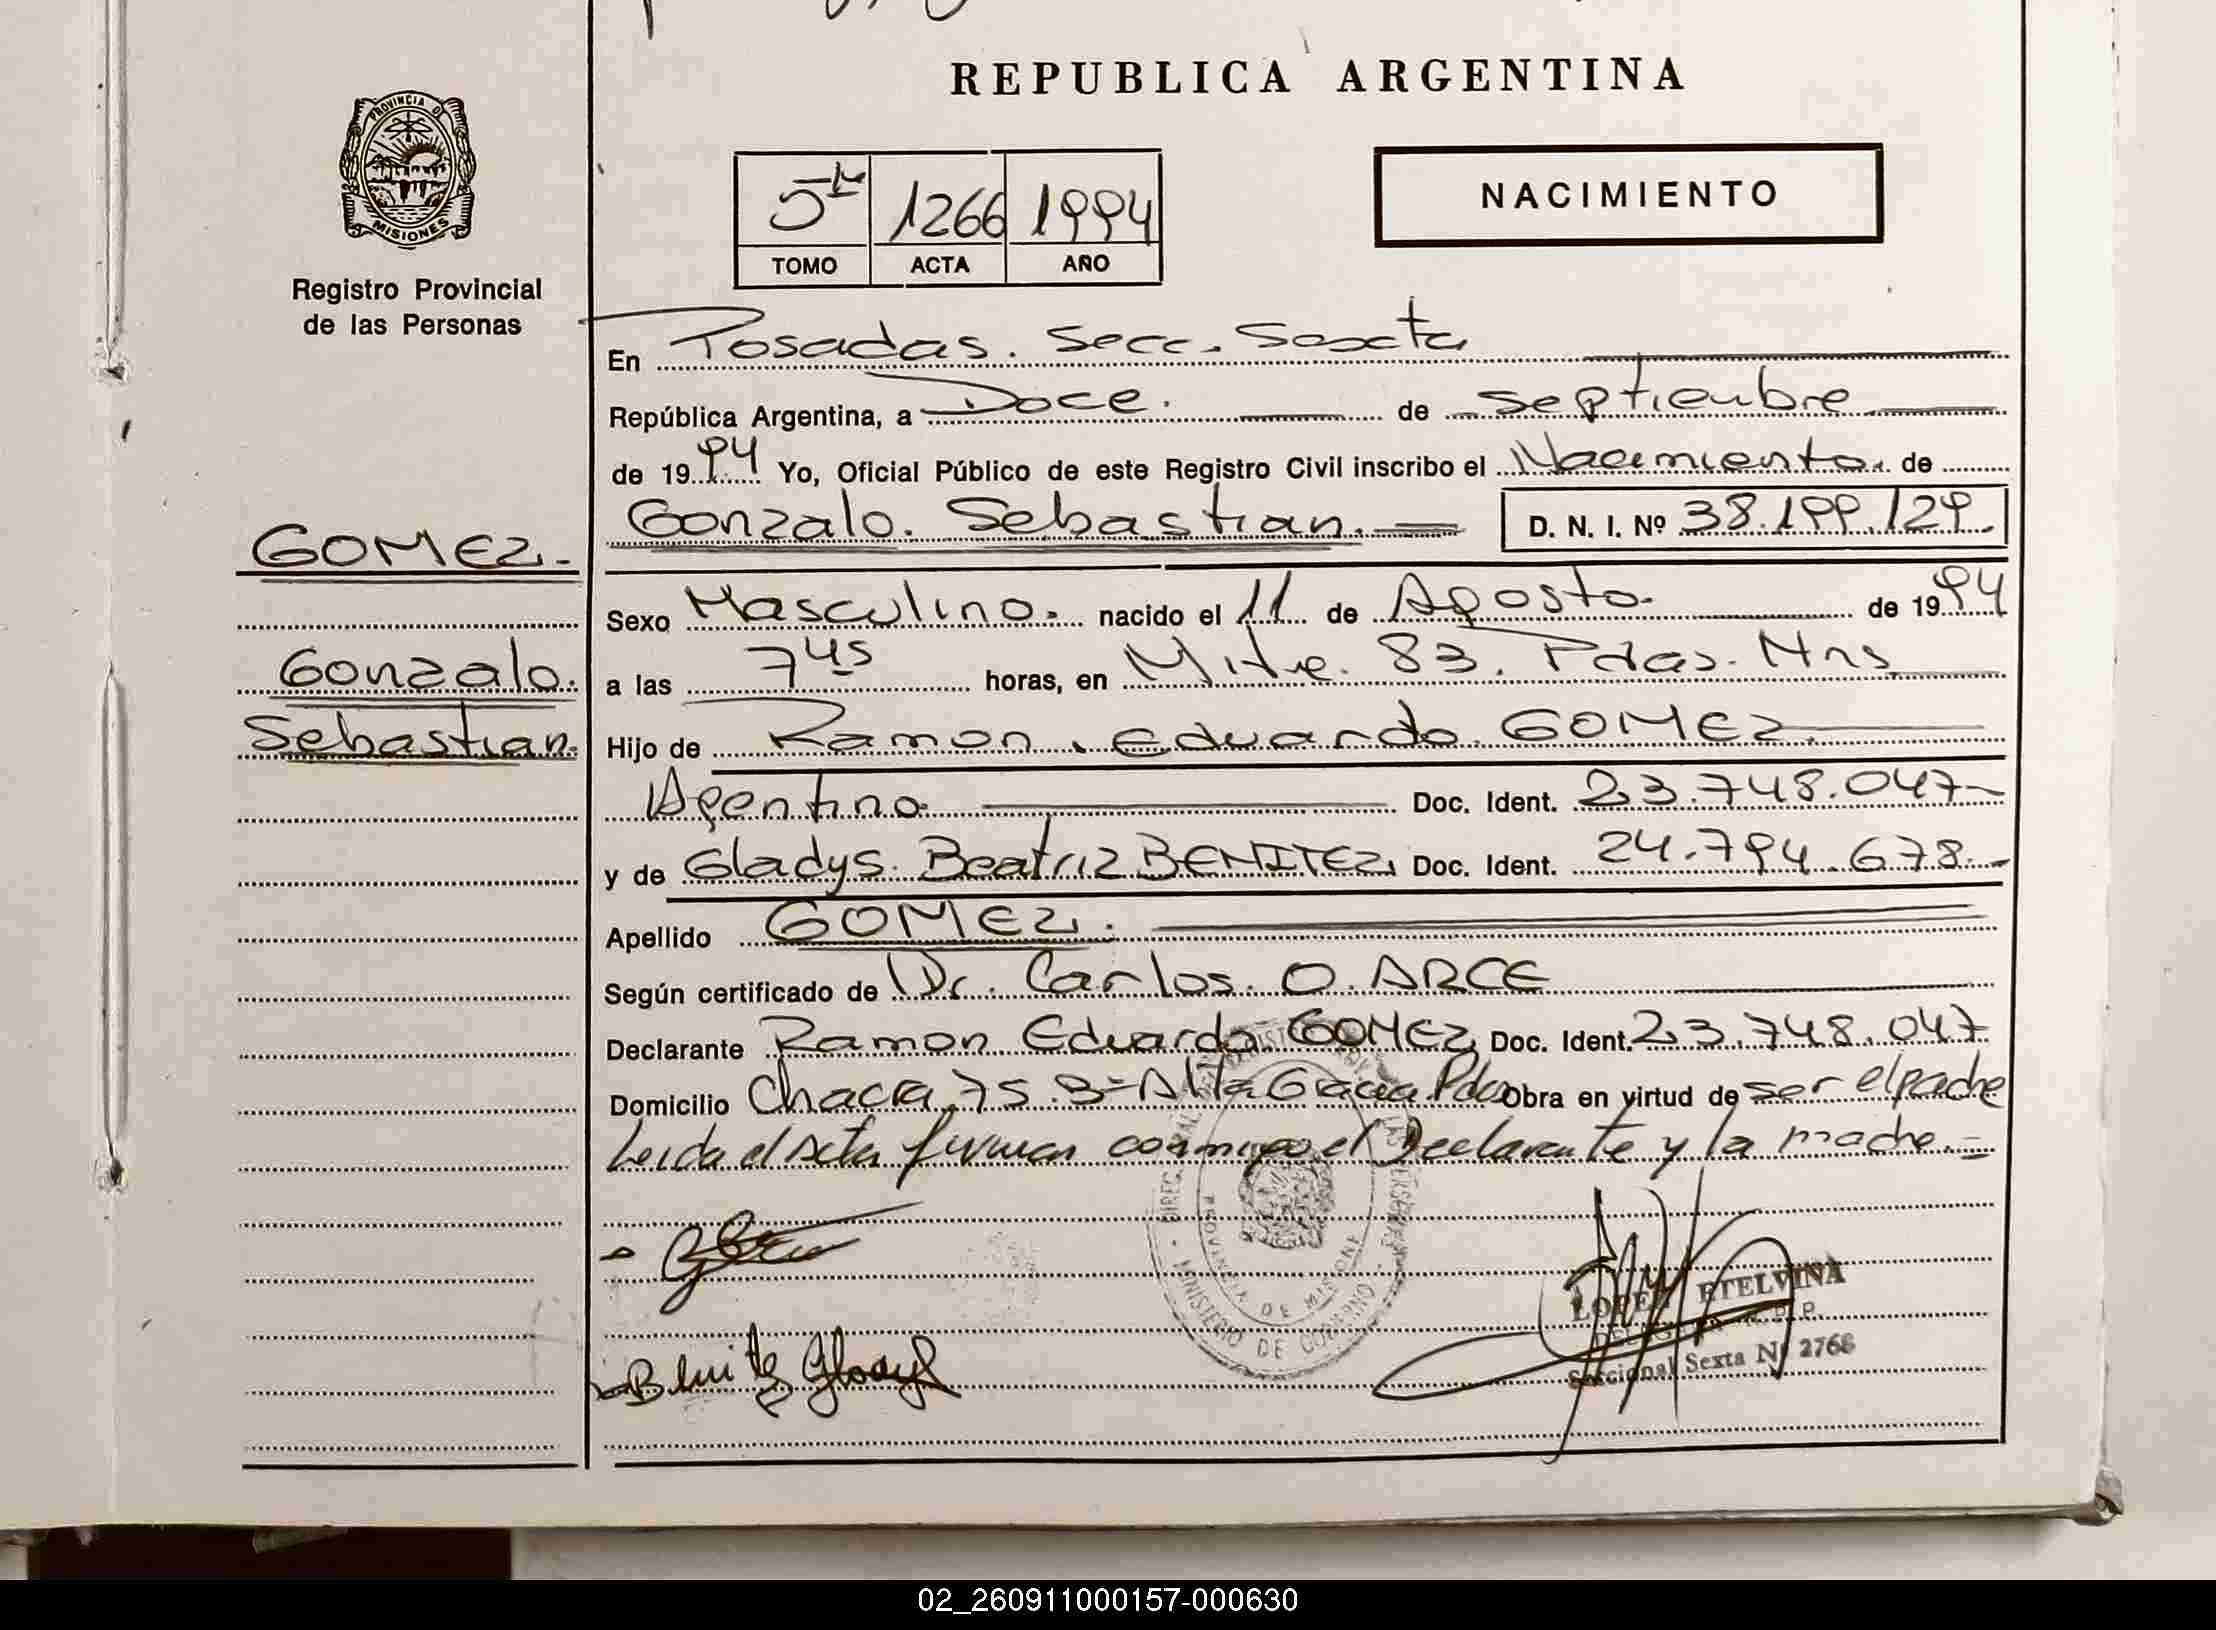 REPUBLICA ARGENTINA
PROVINCIA D
MISIONES
Registro Provincial
de las Personas
5 1266 1994
TOMO ACTA AÑO
NACIMIENTO
En Posadas. Secc. Sexta
República Argentina, a Doce. de Septiembre
de 1994 Yo, Oficial Público de este Registro Civil inscribo el Nacimiento. de
Gonzalo. Sebastian. D. N. I. Nº 38.199.129.
GOMEZ.-
Sexo Masculino. nacido el 11 de Agosto. de 1994
Gonzalo.
a las 7 45 horas, en Mitre. 83. Pdas. Mns
Sebastian.
Hijo de Ramon. Eduardo. GOMEZ
Agentino. Doc. Ident. 23.748.047-
y de Gladys. Beatriz BENITEZ. Doc. Ident. 24.794.678.-
Apellido GOMEZ.
Según certificado de Dr. Carlos. O. ARCE
Declarante Ramon Eduardo. GOMEZ Doc. Ident. 23.748.047
Domicilio Chacra 75. Bº Alta Gracia Pdas Obra en virtud de ser el padre
Leida el Acta firman conmigo el Declarante y la madre.=
Benitez Gladys
MINISTERIO DE GOBIERNO
PROVINCIA DE MISIONES
LOPEZ ETELVINA
Seccional Sexta Nº 2768
02_260911000157-000630